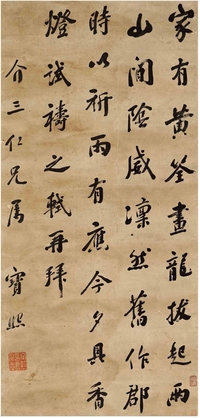 家有黄筌畫龍拔起兩
山間陰威凛然舊作郡
時以祈雨有應今夕具香
燈試禱之軾再拜
介三仁兄屬 寶熙